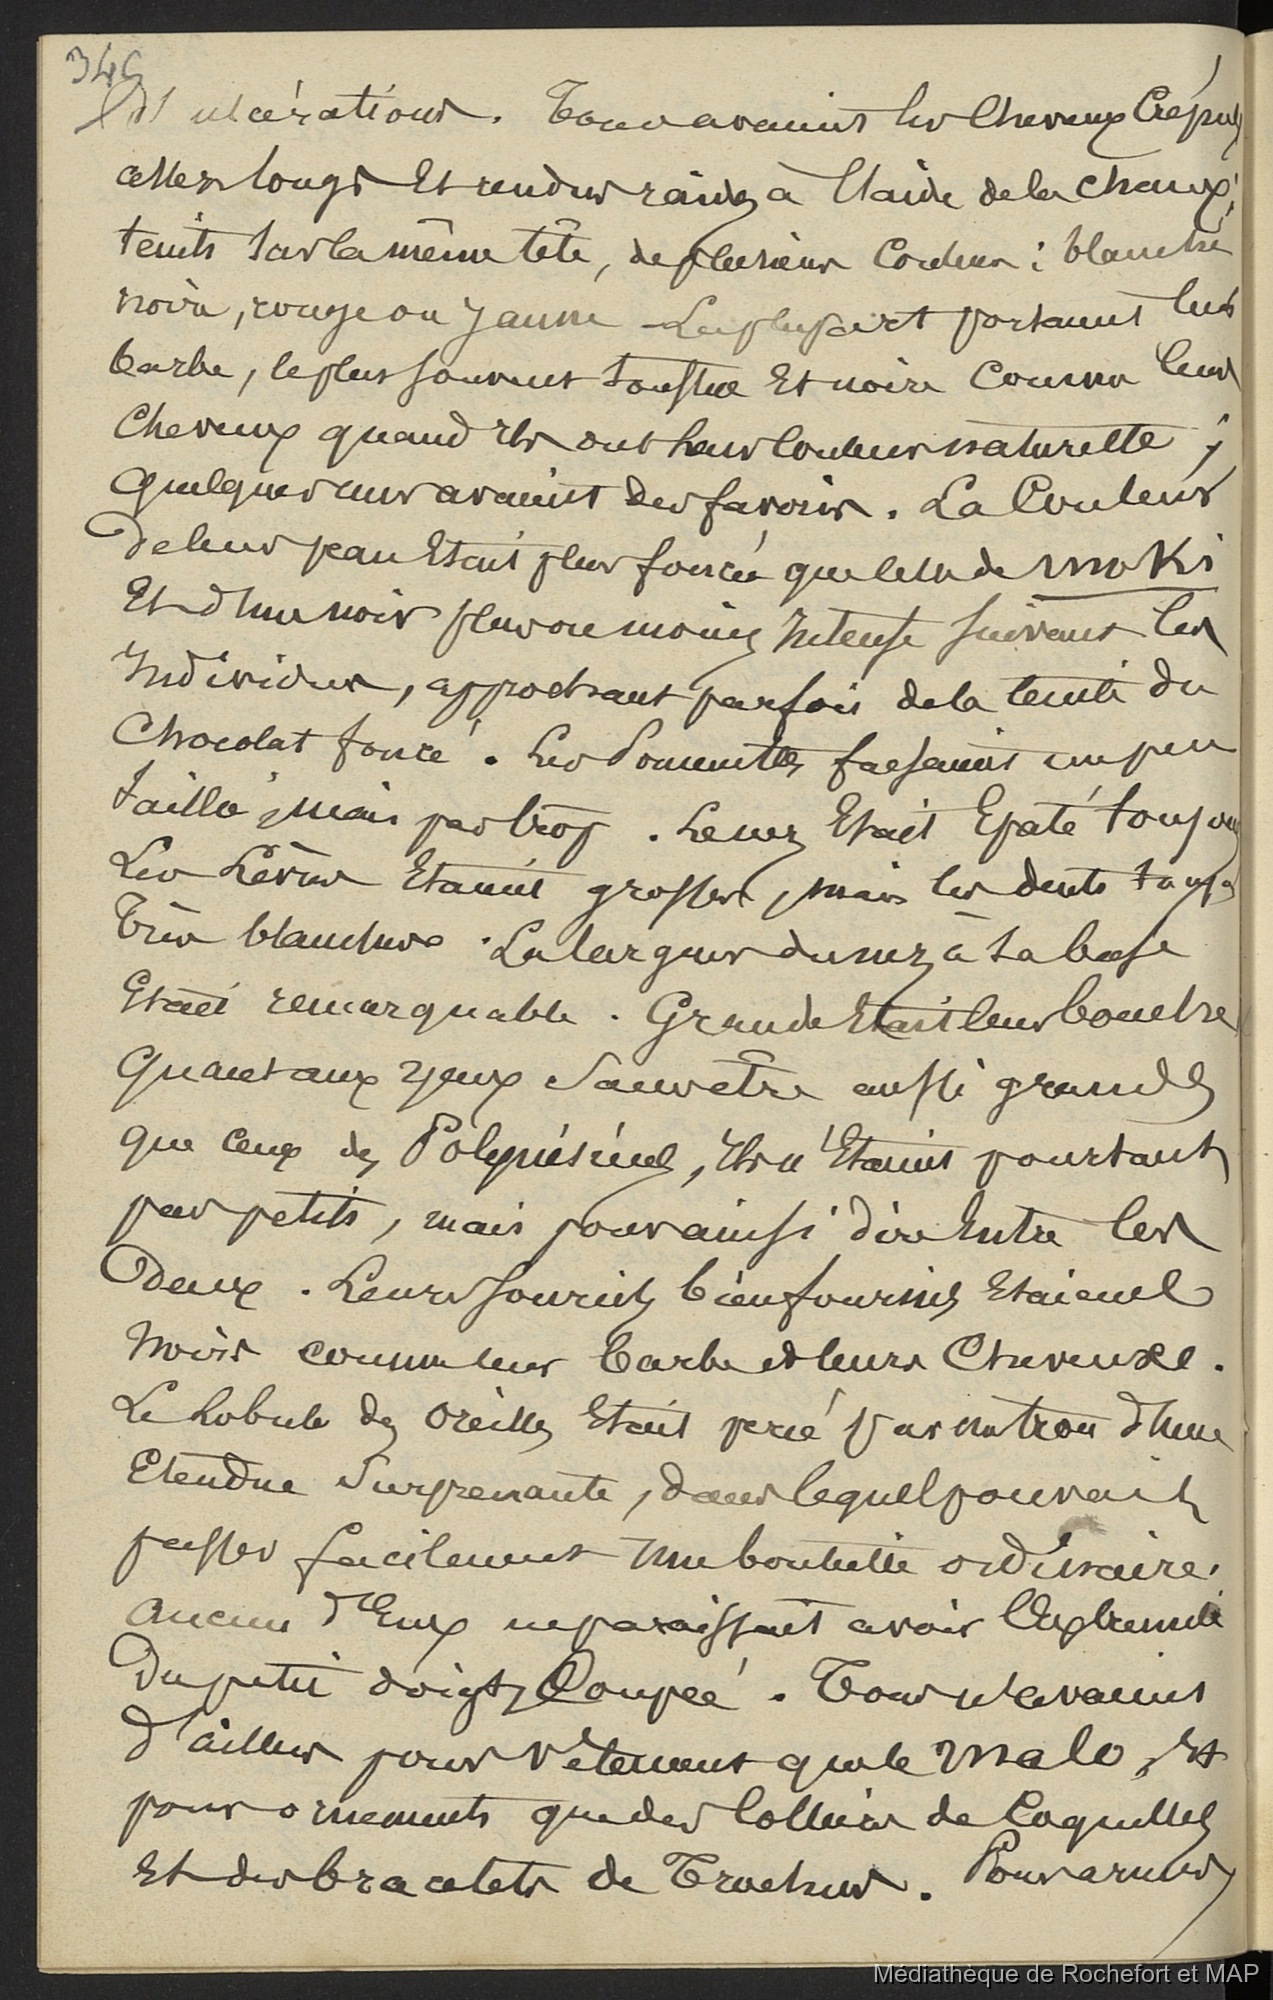 346
d'ulcérations. Tous avaient les cheveux crépus
assez longs et rendus raides à l'aide de la chaux,
teints sur la même tête, de plusieurs couleurs : blanche
noire, rouge ou jaune. La plupart portaient leur
barbe, le plus souvent touffue et noire comme leurs
cheveux quand ils ont leur couleur naturelle ;
quelques uns avaient des favoris. La couleur
de leur peau était plus foncée que celle de moki
et d'un noir plus ou moins intense suivant les
individus, approchant parfois de la teinte du
chocolat foncé. Les pommettes faisaient un peu
saillie, mais pas trop. Le nez était épaté toujours
Les lèvres étaient grosses, mais les dents
très blanches. La largeur du nez à sa base
était remarquable. Grande était leur bouche
Quant aux yeux sans être aussi grands
que ceux des Polynésiens, ils n'étaient pourtant
pas petits, mais pour ainsi dire entre les
deux. Leurs sourcils bien fournis étaient
noirs comme leur barbe et leurs cheveux.
Le lobule des oreilles était percé par un trou d'une
étendue surprenante, dans lequel pouvait
passer facilement une bouteille ordinaire.
Aucun d'eux ne paraissait avoir l'extrémité
du petit doigt coupée. Tous n'avaient
d'ailleurs pour vêtement que le malo, et
pour ornements que des colliers de coquilles
et des bracelets de Trochus. Pour armes
Médiathèque de Rochefort et MAP